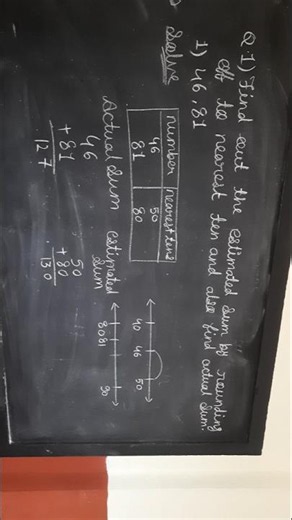 Q.1) Find out the estimated sum by rounding
off to nearest ten and also find actual sum.
1) 46, 81
Solve
number nearest tens
46 50
81 80
40 46 50
80 81 90
Actual sum estimated
sum
46 50
+ 81 + 80
127 130